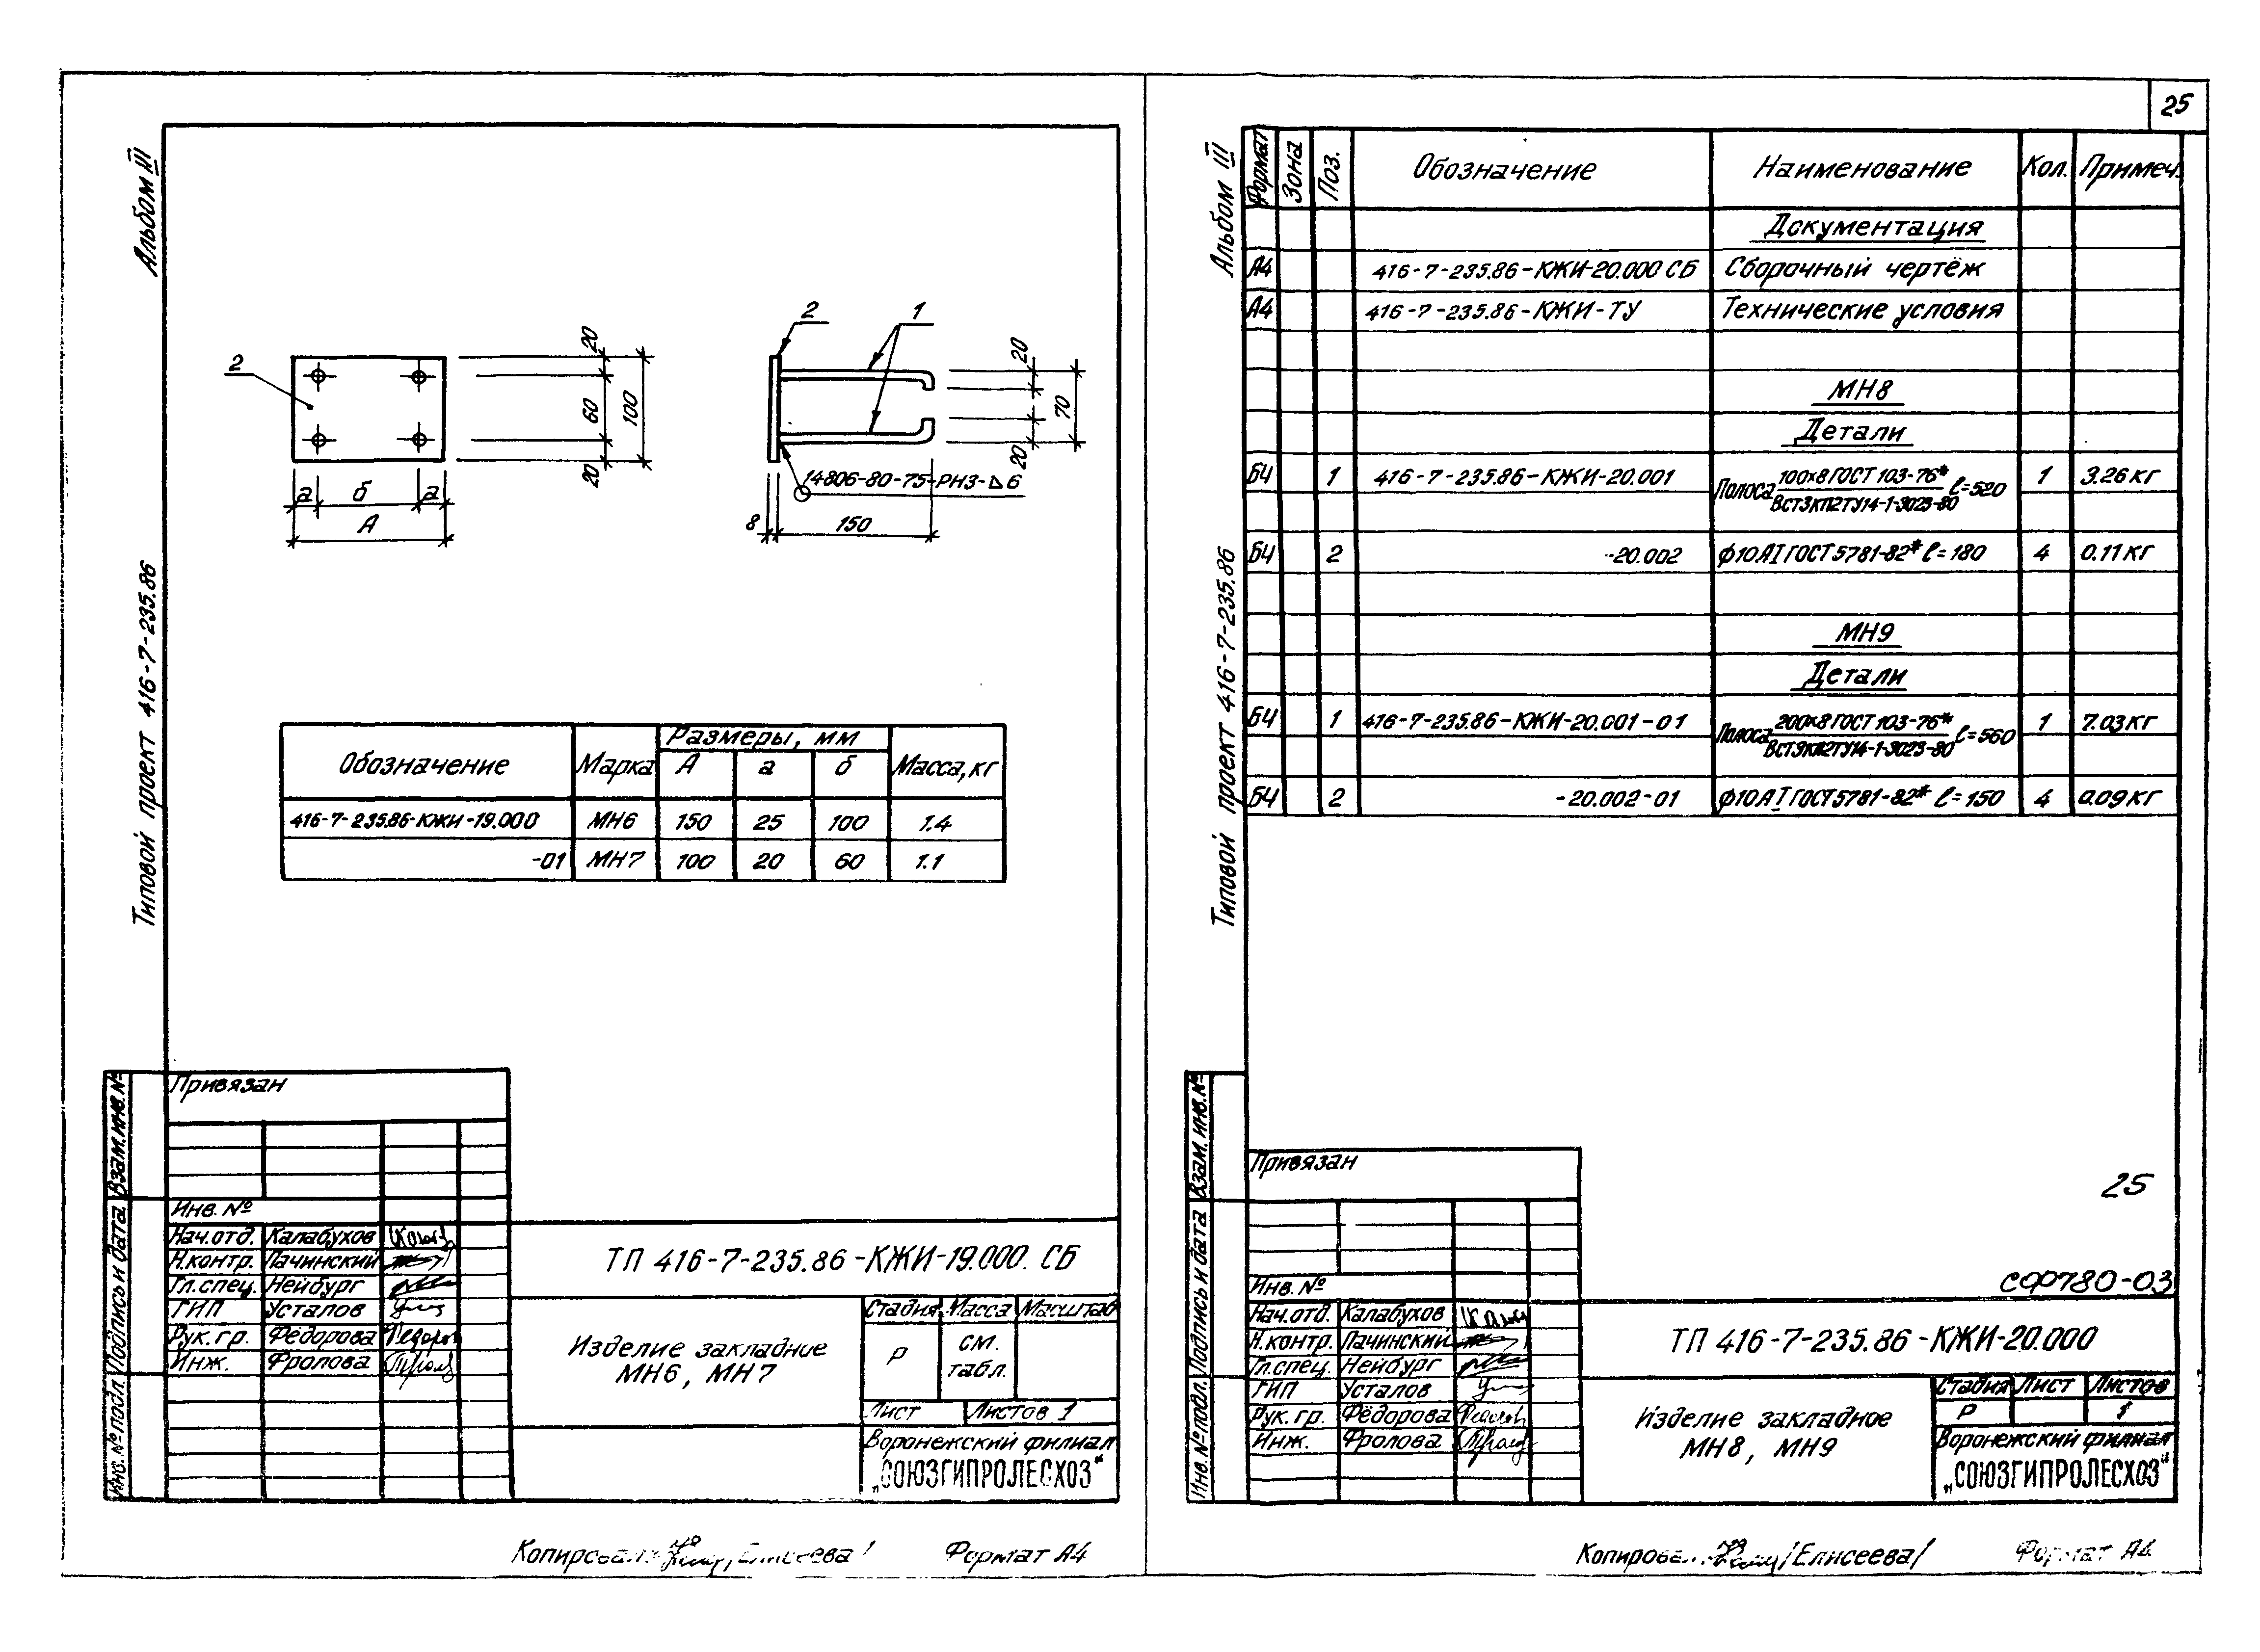 25
Альбом III
Типовой проект 416-7-235.86
2
20
60
20
100
а б а
А
2 1
20
20
70
14806-80-75-РНЗ-Δ6
8 150
Обозначение Марка Размеры, мм Масса, кг
А а б
416-7-235.86-КЖИ-19.000 МН6 150 25 100 1.4
-01 МН7 100 20 60 1.1
Взам.инв.№
Подпись и дата
Инв.№подл.
Привязан
Инв.№
Нач.отд. Калабухов
Н.контр. Пачинский
Гл.спец. Нейбург
ГИП Усталов
Рук.гр. Фёдорова
Инж. Фролова
ТП 416-7-235.86-КЖИ-19.000. СБ
Изделие закладное
МН6, МН7
Стадия Масса Масштаб
Р см. табл.
Лист Листов 1
Воронежский филиал
„СОЮЗГИПРОЛЕСХОЗ"
Копировал Елисеева/ Формат А4
Альбом III
Типовой проект 416-7-235.86
Формат Зона Поз. Обозначение Наименование Кол. Примеч.
Документация
А4 416-7-235.86-КЖИ-20.000 СБ Сборочный чертёж
А4 416-7-235.86-КЖИ-ТУ Технические условия
МН8
Детали
БЧ 1 416-7-235.86-КЖИ-20.001 Полоса 100х8 ГОСТ 103-76* ℓ=520 1 3.26 кг
ВСт3КП2ТУ14-1-3023-80
БЧ 2 -20.002 ф10АI ГОСТ 5781-82* ℓ=180 4 0.11 кг
МН9
Детали
БЧ 1 416-7-235.86-КЖИ-20.001-01 Полоса 200х8 ГОСТ 103-76* ℓ=560 1 7.03 кг
ВСт3КП2ТУ14-1-3023-80
БЧ 2 -20.002-01 ф10АI ГОСТ 5781-82* ℓ=150 4 0.09 кг
Взам.инв.№
Подпись и дата
Инв.№подл.
Привязан
25
Инв.№
СФ780-03
Нач.отд. Калабухов
Н.контр. Пачинский
Гл.спец. Нейбург
ГИП Усталов
Рук.гр. Фёдорова
Инж. Фролова
ТП 416-7-235.86-КЖИ-20.000
Изделие закладное
МН8, МН9
Стадия Лист Листов
Р 1
Воронежский филиал
„СОЮЗГИПРОЛЕСХОЗ"
Копировал /Елисеева/ Формат А4